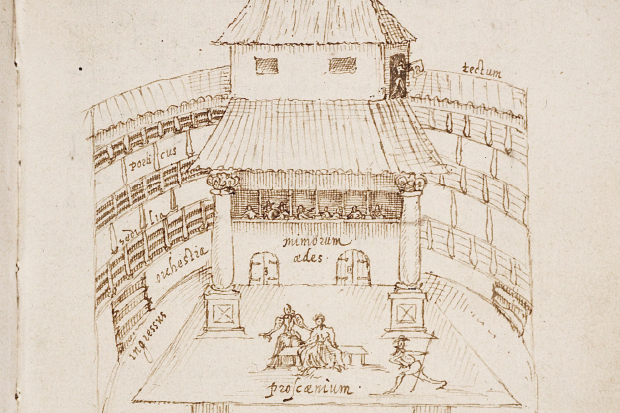 tectum
porticus
sedilia
orchestra
mimorum
ædes.
ingressus
proscænium.